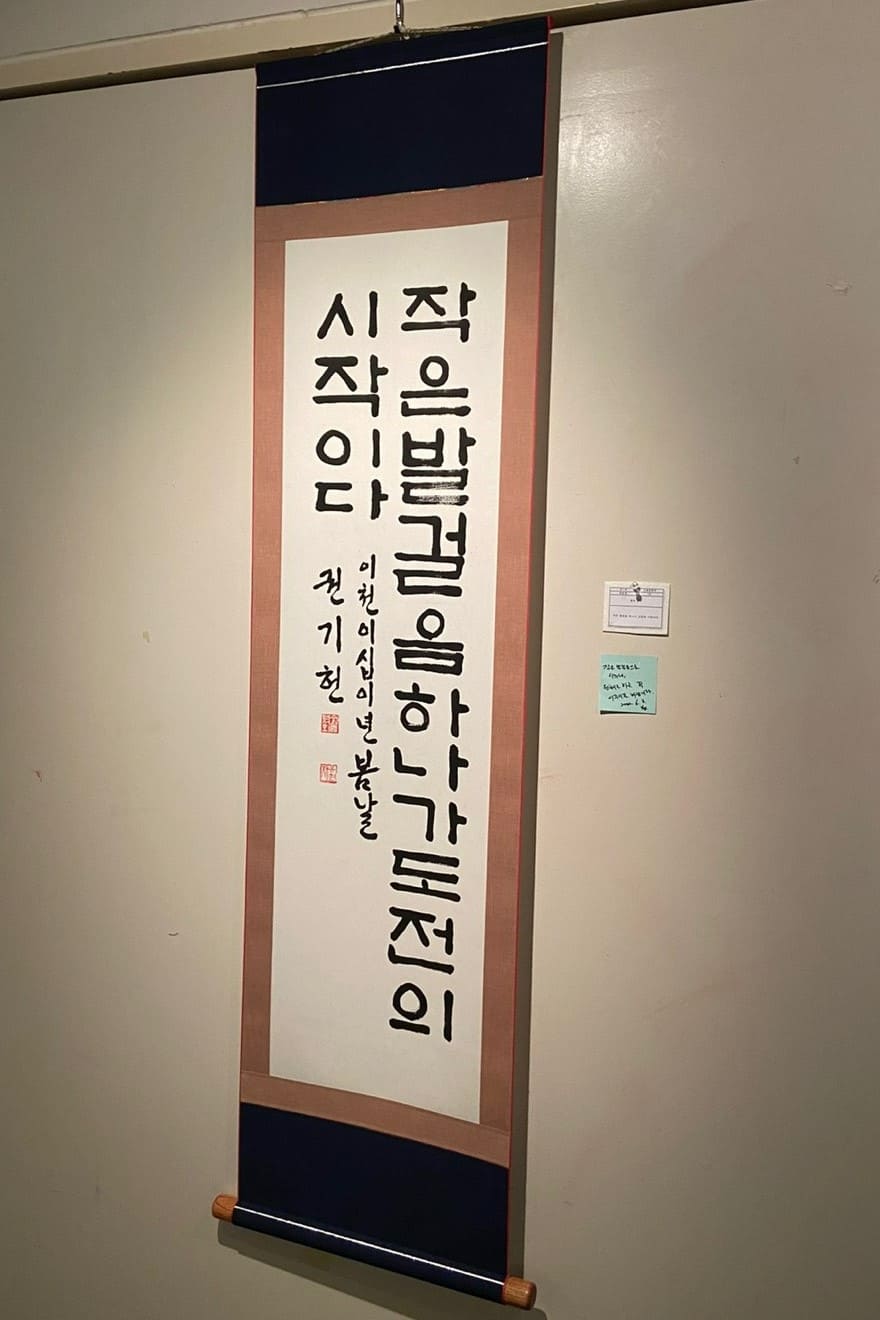 작은발걸음하나가도전의
시작이다
이천이십이년봄날
권기헌